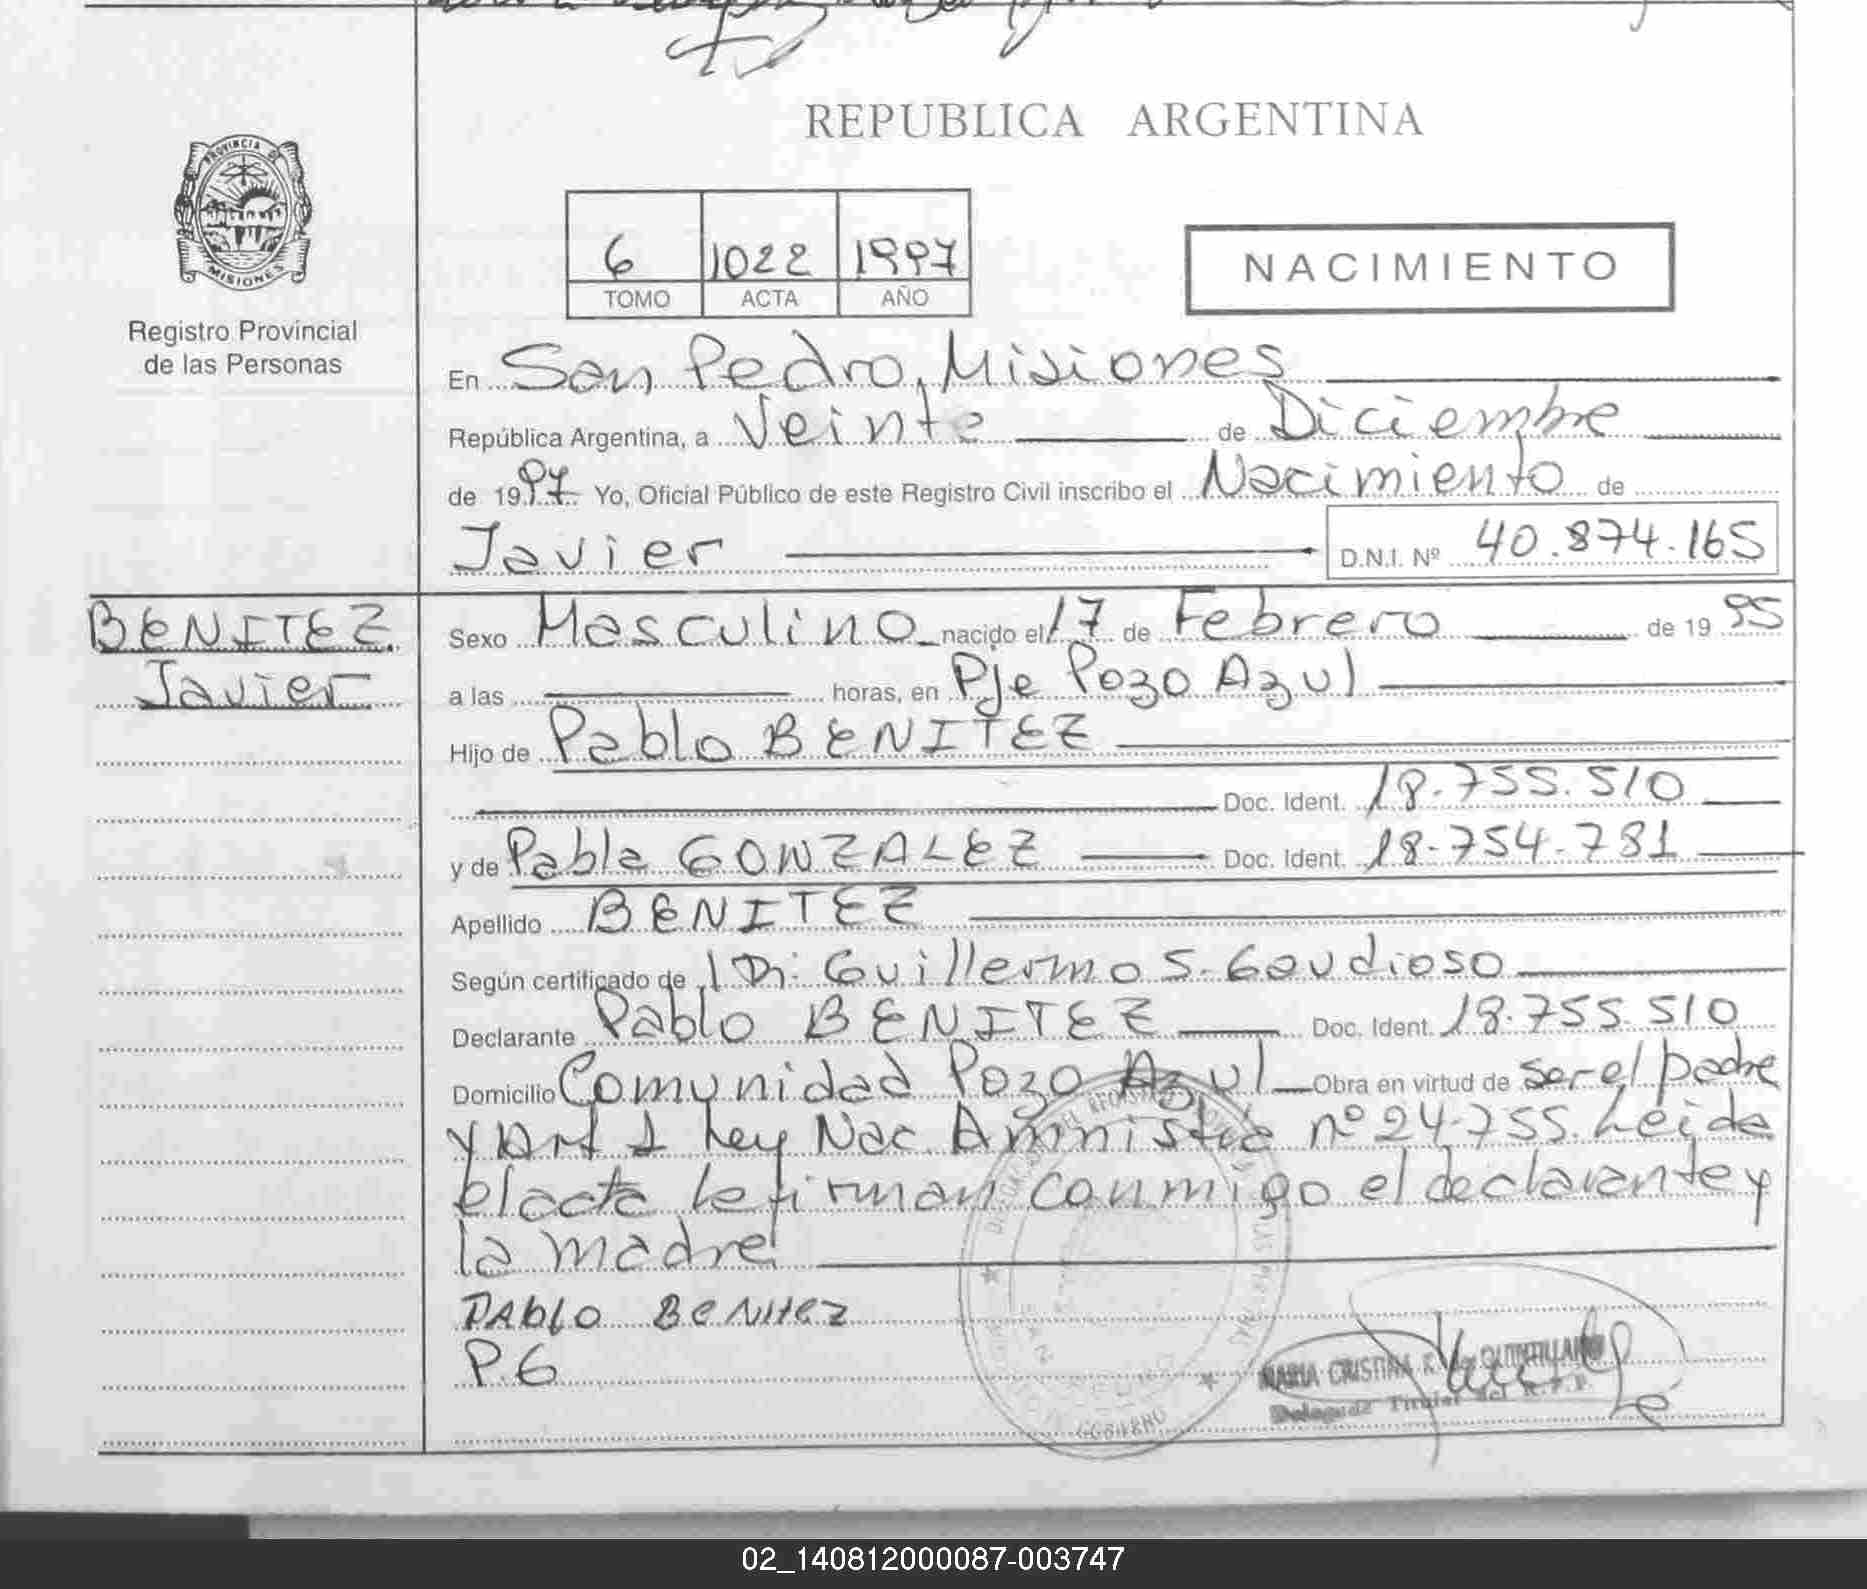 REPUBLICA ARGENTINA
PROVINCIA DE
MISIONES
Registro Provincial
de las Personas
6 1022 1997
TOMO ACTA AÑO
NACIMIENTO
En San Pedro, Misiones
República Argentina, a Veinte de Diciembre
de 1997 Yo, Oficial Público de este Registro Civil inscribo el Nacimiento de
Javier D.N.I. Nº 40.874.165
BENITEZ
Javier
Sexo Masculino nacido el 17 de Febrero de 1995
a las horas, en Pje Pozo Azul
Hijo de Pablo BENITEZ
Doc. Ident. 18.755.510
y de Pabla GONZALEZ Doc. Ident. 18.754.781
Apellido BENITEZ
Según certificado de Dr. Guillermo S. Gaudioso
Declarante Pablo BENITEZ Doc. Ident. 18.755.510
Domicilio Comunidad Pozo Azul Obra en virtud de ser el padre
y Art 1 Ley Nac Amnistia nº 24.755. Leida
el acta la firman conmigo el declarante y
la madre
PABLO BENITEZ
P.G
MARIA CRISTINA QUINTILLANO
Delegada Titular del R.P.P.
GOBIERNO
02_140812000087-003747